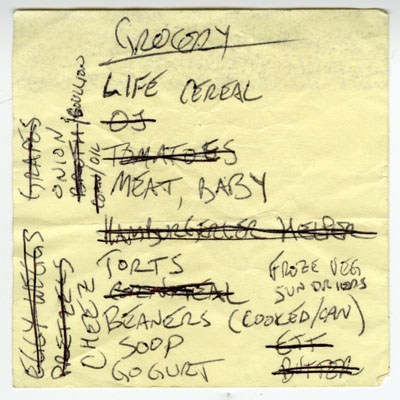 GROCORY
LIFE CEREAL
OJ
TOMATOES
MEAT, BABY
HAMBURGERLER HELPER
TORTS
CORNMEAL
BEANERS (COOKED/CAN)
SOOP
GOGURT
FROZE VEG
SUN DRIODS
BITTER
GRAPES
ONION
BROTH/BOUILLON
EGGY WEGGS
PRETZELS
CHEEZ